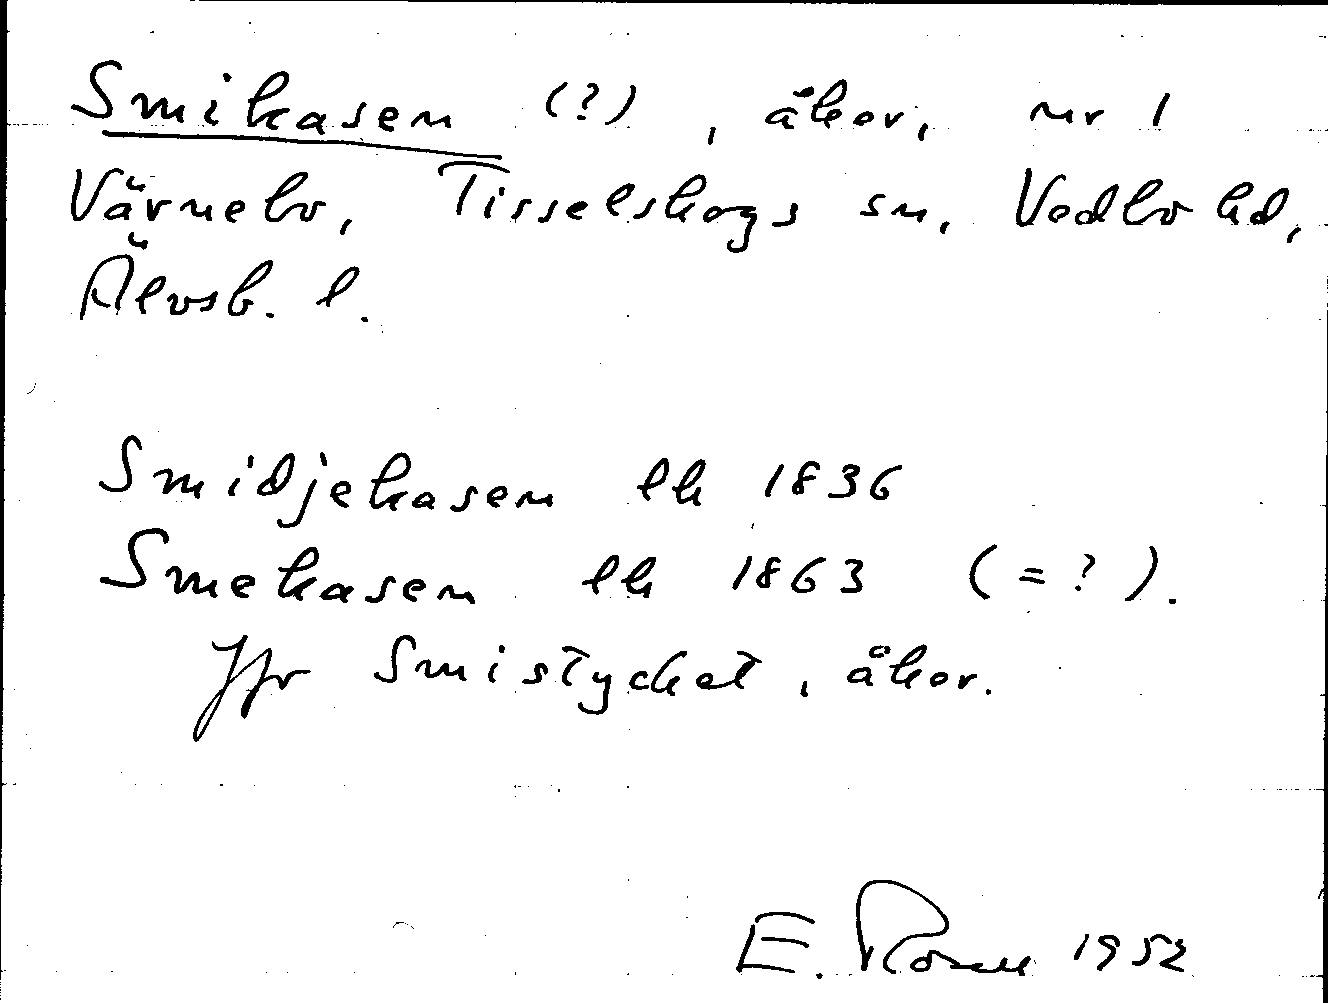 Smikasen (?), åker, nr 1
Värnebo, Tisselskogs sn, Vedbo hd,
Älvsb. l.
Smidjekasen lh 1836
Smekasen lh 1863 (=?).
Jfr Smistycket, åker.
E. Rosell 1952